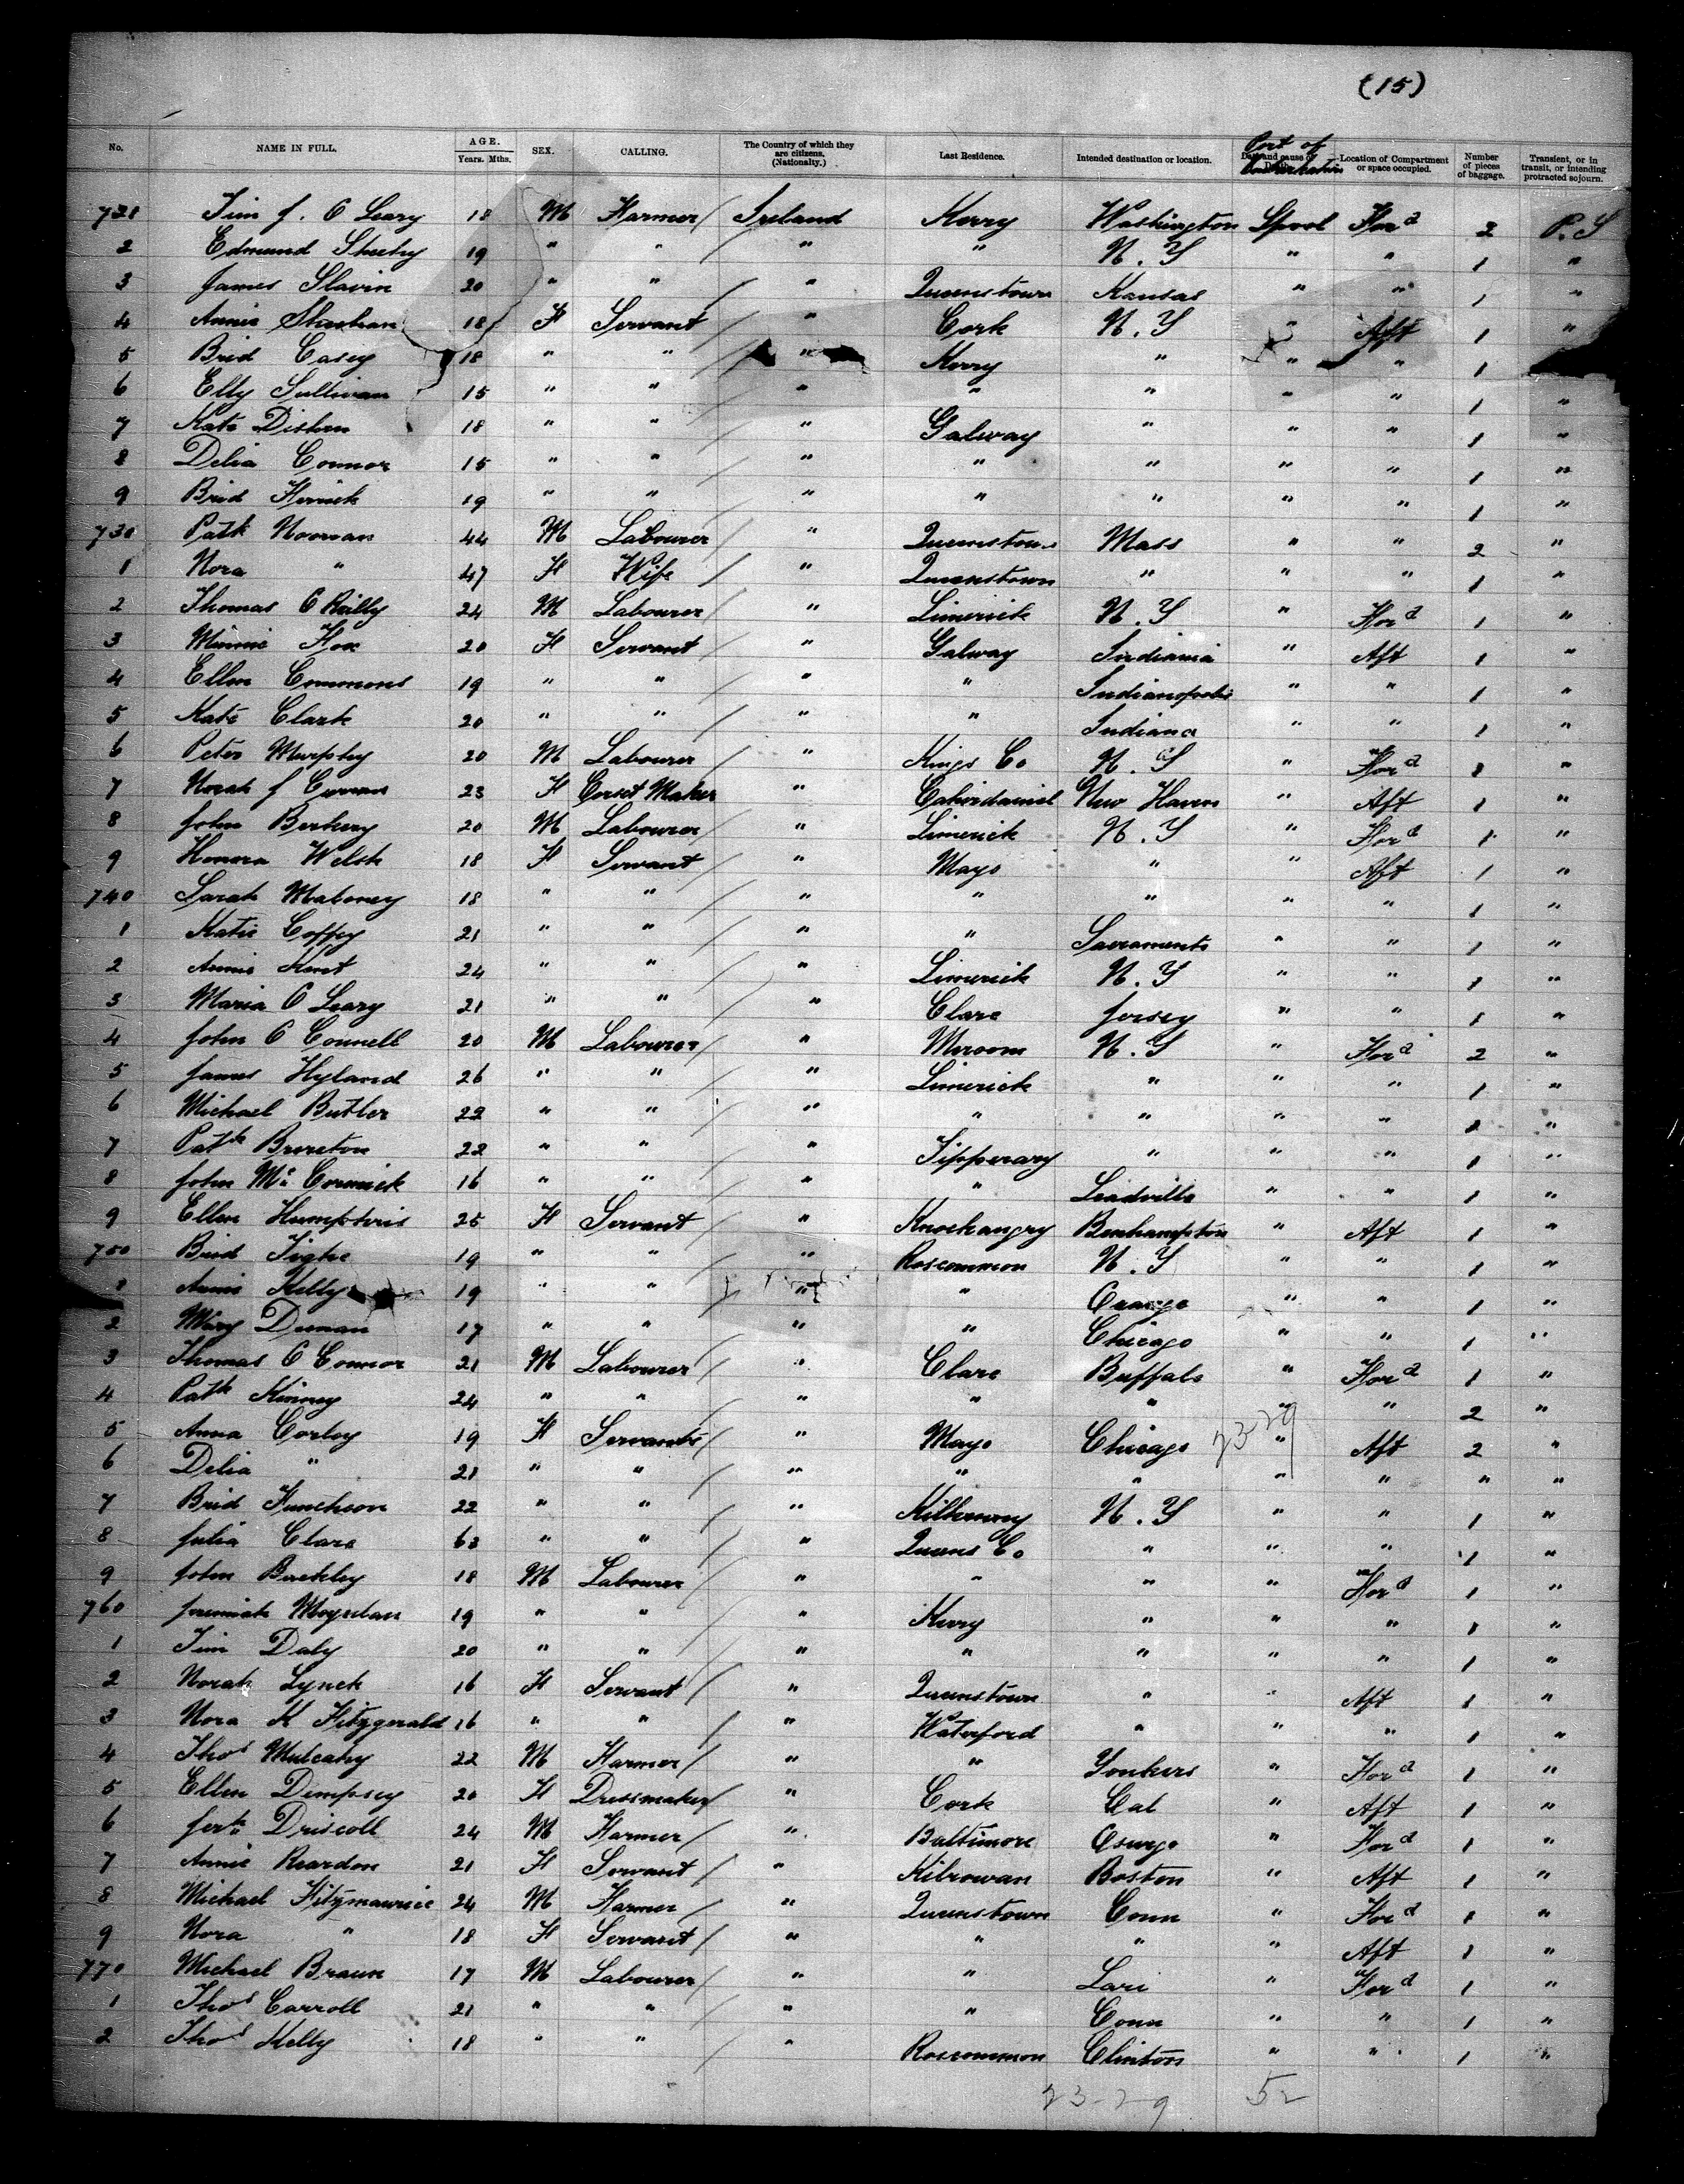 (15)
No. NAME IN FULL. AGE. Years. Mths. SEX. CALLING. The Country of which they are citizens. (Nationalty.) Last Residence. Intended destination or location. Port of Location of Compartment or space occupied. Number of pieces of baggage. Transient, or in transit, or intending protracted sojourn.
721 Tim J. O Leary 18 M Farmer / Ireland Kerry Washington Lpool For d 2 P.S
2 Edmund Sheehy 19 " " / " " N.Y " " 1 "
3 James Slavin 20 " " / " Queenstown Kansas " " 1 "
4 Annie Sheehan 18 F Servant / " Cork N.Y " Aft 1 "
5 Brid Casey 18 " " / " Kerry " " " 1
6 Elly Sullivan 15 " " / " " " " " 1 "
7 Kate 18 " " / " Galway " " " 1 "
8 Delia Connor 15 " " / " " " " " 1 "
9 Brid 19 " " / " " " " " 1 "
730 Patk Noonan 44 M Labourer / " Queenstown Mass " " 2 "
1 Nora " 47 F Wife / " Queenstown " " " 1 "
2 Thomas O Reilly 24 M Labourer / " Limerick N.Y " For d 1 "
3 Minnie Fox 20 F Servant / " Galway Indiania " Aft 1 "
4 Ellen Commons 19 " " / " " Indianopolis " " 1 "
5 Kate Clark 20 " " / " " Indiana " " 1 "
6 Peter Murphy 20 M Labourer / " Kings Co N.Y " For d 1 "
7 Norah J Curran 23 F Corset Maker " Cahirdaniel New Haven " Aft 1 "
8 John Berkery 20 M Labourer / " Limerick N.Y " For d 1 "
9 Honora Welsh 18 F Servant / " Mayo " " Aft 1 "
740 Sarah Maloney 18 " " / " " " " " 1 "
1 Katie Coffey 21 " " / " " Sacramento " " 1 "
2 Annie Kent 24 " " / " Limerick N.Y " " 1 "
3 Maria O Leary 21 " " / " Clare Jersey " " 1 "
4 John O Connell 20 M Labourer / " N.Y " For d 2 "
5 James Hyland 26 " " / " Limerick " " " 1 "
6 Michael Butler 22 " " / " " " " " 1 "
7 Patk Brereton 22 " " / " Tipperary " " " 1 "
8 John Mc Cormick 16 " " / " " Leadville " " 1 "
9 Ellen Humphris 25 F Servant / " Knockangry Benhampton " Aft 1 "
750 Brid Tighe 19 " " / " Roscommon N.Y " " 1 "
1 Annie Kelly 19 " " " " Orange " " 1 "
2 Mary Deenan 17 " " / " " Chicago " " 1 "
3 Thomas O Connor 21 M Labourer / " Clare Buffalo " For d 1 "
4 Patk Kinney 24 " " / " " " " " 2 "
5 Anna Corloy 19 F Servants / " Mayo Chicago 23-29 " Aft 2 "
6 Delia " 21 " " / " " " " " " "
7 Brid Funcheon 22 " " / " Kilkenny N.Y " " 1 "
8 Julia Clare 63 " " / " Queens Co " " " 1 "
9 John Buckley 18 M Labourer / " " " " For d 1 "
760 Jeremiah Moynihan 19 " " / " Kerry " " " 1 "
1 Tim Daly 20 " " / " " " " " 1 "
2 Norah Lynch 16 F Servant / " Queenstown " " Aft 1 "
3 Nora K Fitzgerald 16 " " / " Waterford " " " 1 "
4 Thos Mulcahy 22 M Farmer / " " Yonkers " For d 1 "
5 Ellen Dempsey 20 F Dressmaker / " Cork Cal " Aft 1 "
6 Driscoll 24 M Farmer / " Baltimore Osurgo " For d 1 "
7 Annie Reardon 21 F Servant / " Kilrowan Boston " Aft 1 "
8 Michael Fitzmaurice 24 M Farmer / " Queenstown Conn " For d 1 "
9 Nora " 18 F Servant / " " " " Aft 1 "
770 Michael Braun 17 M Labourer / " " Lari " For d 1 "
1 Thos Carroll 21 " " / " " Conn " " 1 "
2 Thos Kelly 18 " " / " Roscommon Clinton " " 1 "
23-29 52